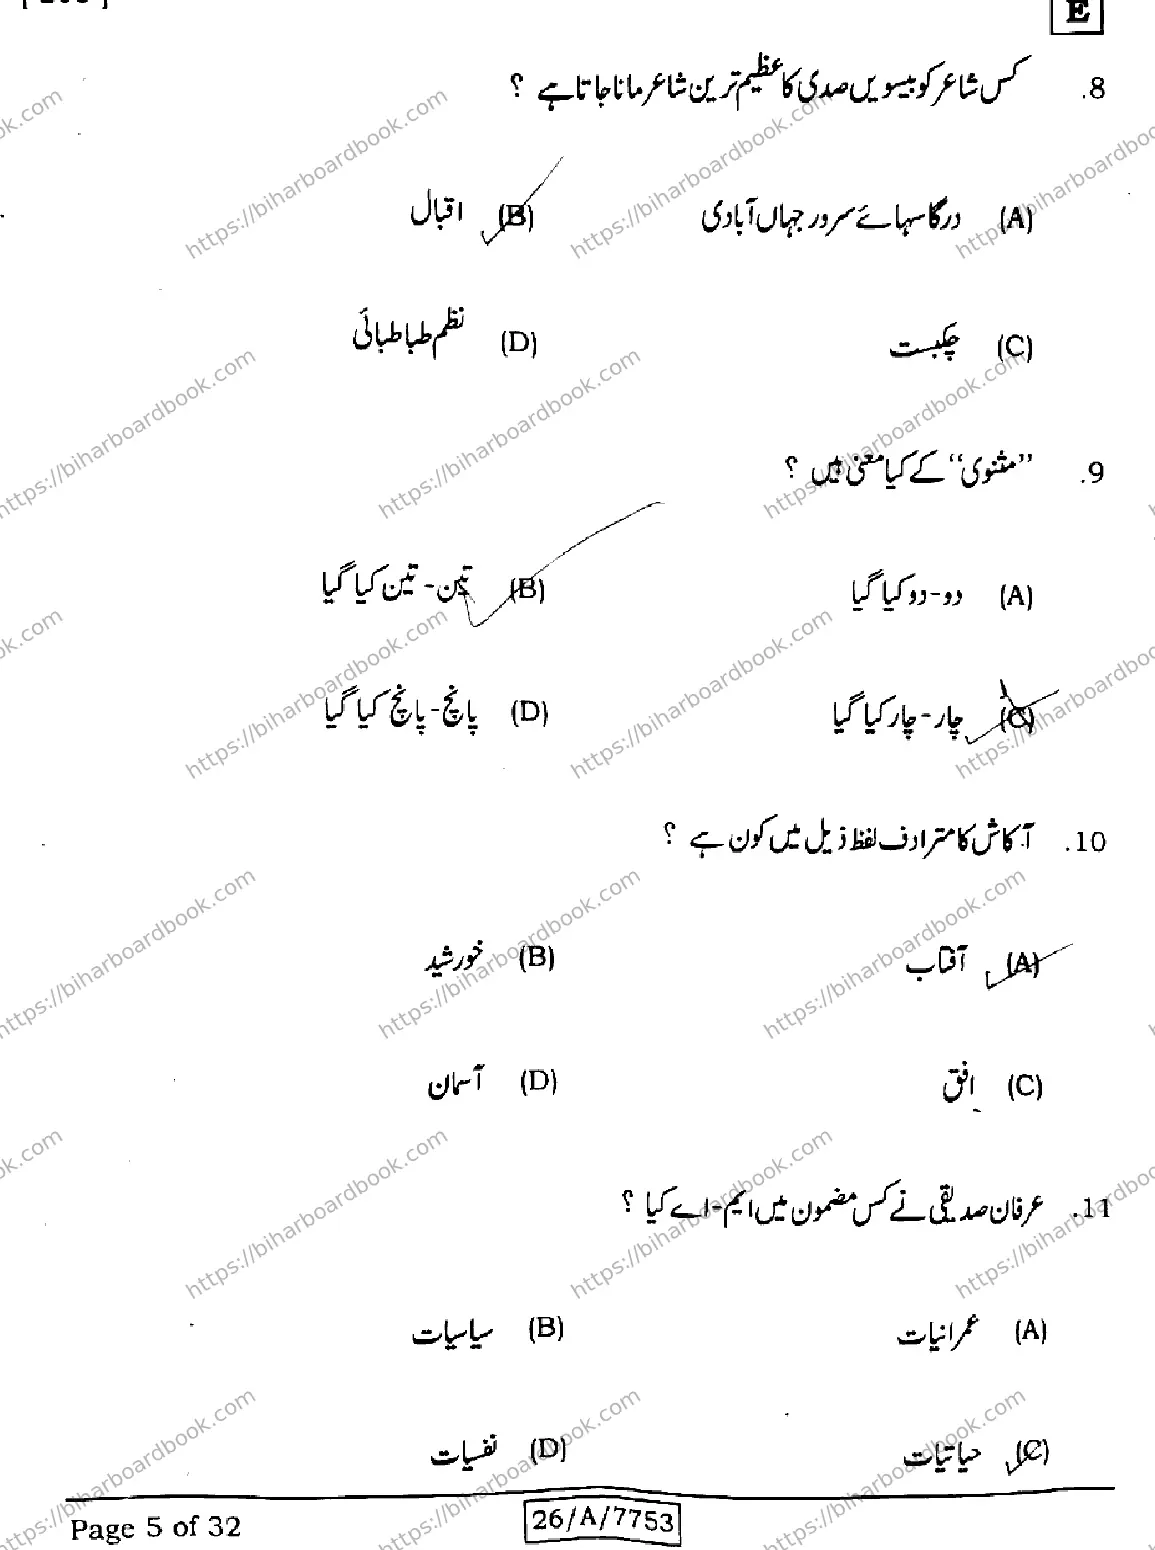 E
8. کس شاعر کو بیسویں صدی کا عظیم ترین شاعر مانا جاتا ہے ؟
(A) درگا سہائے سرور جہاں آبادی (B) اقبال
(C) چکبست (D) نظم طباطبائی
9. ”مثنوی“ کے کیا معنی ہیں ؟
(A) دو-دو کیا گیا (B) تین-تین کیا گیا
(C) چار-چار کیا گیا (D) پانچ-پانچ کیا گیا
10. آکاش کا مترادف لفظ ذیل میں کون ہے ؟
(A) آفتاب (B) خورشید
(C) افق (D) آسمان
11. عرفان صدیقی نے کس مضمون میں ایم-اے کیا ؟
(A) عمرانیات (B) سیاسیات
(C) حیاتیات (D) نفسیات
Page 5 of 32
26/A/7753
https://biharboardbook.com